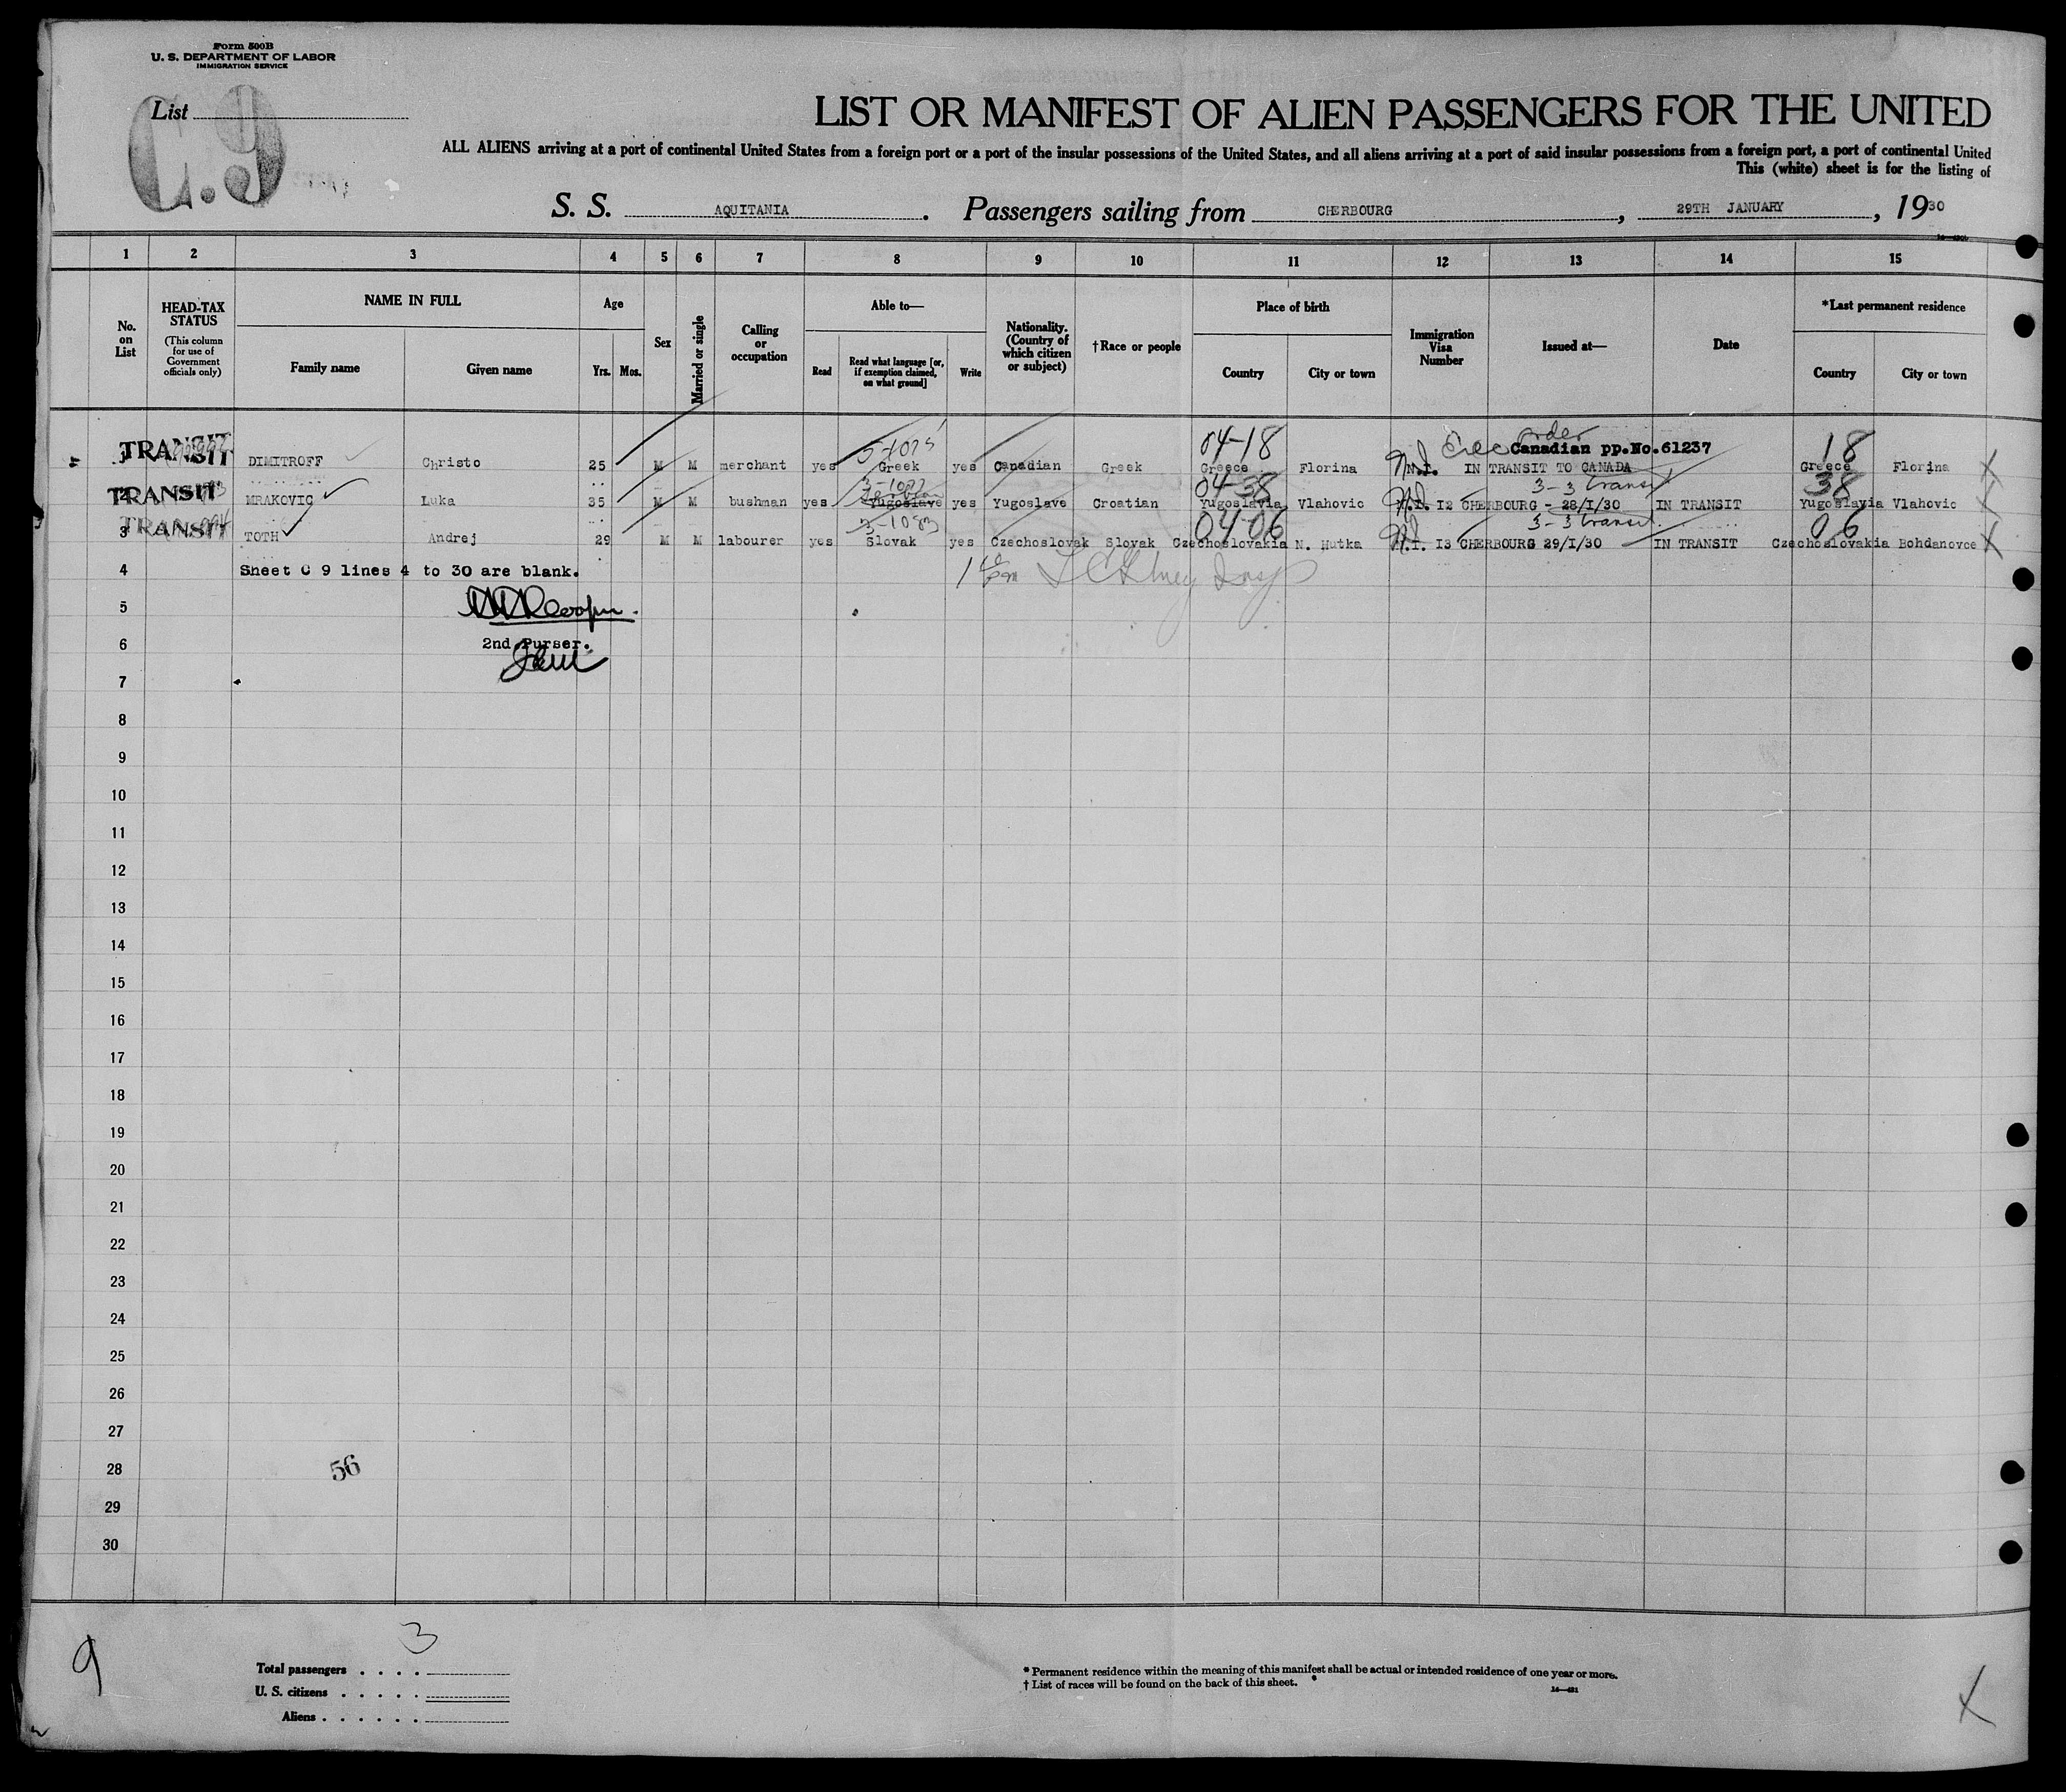 Form 500B
U. S. DEPARTMENT OF LABOR
IMMIGRATION SERVICE
List
C.9
LIST OR MANIFEST OF ALIEN PASSENGERS FOR THE UNITED
ALL ALIENS arriving at a port of continental United States from a foreign port or a port of the insular possessions of the United States, and all aliens arriving at a port of said insular possessions from a foreign port, a port of continental United
This (white) sheet is for the listing of
S. S. AQUITANIA. Passengers sailing from CHERBOURG, 29TH JANUARY, 1930
1 2 3 4 5 6 7 8 9 10 11 12 13 14 15
No. on List
HEAD-TAX STATUS
(This column for use of Government officials only)
NAME IN FULL
Family name Given name
Age
Yrs. Mos.
Sex
Married or single
Calling or occupation
Able to—
Read Read what language [or, if exemption claimed, on what ground] Write
Nationality. (Country of which citizen or subject)
†Race or people
Place of birth
Country City or town
Immigration Visa Number
Issued at—
Date
*Last permanent residence
Country City or town
04-18 order Canadian pp.No.61237 18
1 TRANSIT DIMITROFF Christo 25 M M merchant yes Greek yes Canadian Greek Greece Florina N.I. IN TRANSIT TO CANADA Greece Florina X
04-38 3-3 transit 38
2 TRANSIT MRAKOVIC Luka 35 M M bushman yes Yugoslave yes Yugoslave Croatian Yugoslavia Vlahovic N.I. I2 CHERBOURG - 28/I/30 IN TRANSIT Yugoslavia Vlahovic X
3-1083 04-06 3-3 transit 06
3 TRANSIT TOTH Andrej 29 M M labourer yes Slovak yes Czechoslovak Slovak Czechoslovakia N. Hutka N.I. I3 CHERBOURG 29/I/30 IN TRANSIT Czechoslovakia Bohdanovce X
4 Sheet C 9 lines 4 to 30 are blank.
5
6 2nd.Purser.
7
8
9
10
11
12
13
14
15
16
17
18
19
20
21
22
23
24
25
26
27
28 56
29
30
9
3
Total passengers
U. S. citizens
Aliens
* Permanent residence within the meaning of this manifest shall be actual or intended residence of one year or more.
† List of races will be found on the back of this sheet.
X